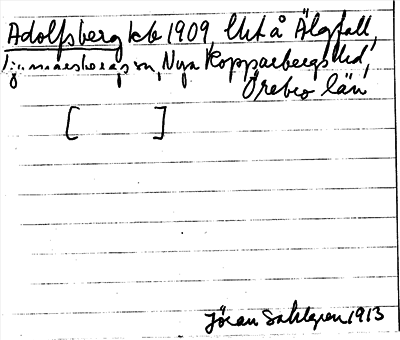 Adolfsberg kb 1909, Ut å Älgfall,
Ljusnarsbergs sn, Nya Kopparbergs bd,
Örebro län
[ ]
Jöran Sahlgren 1913